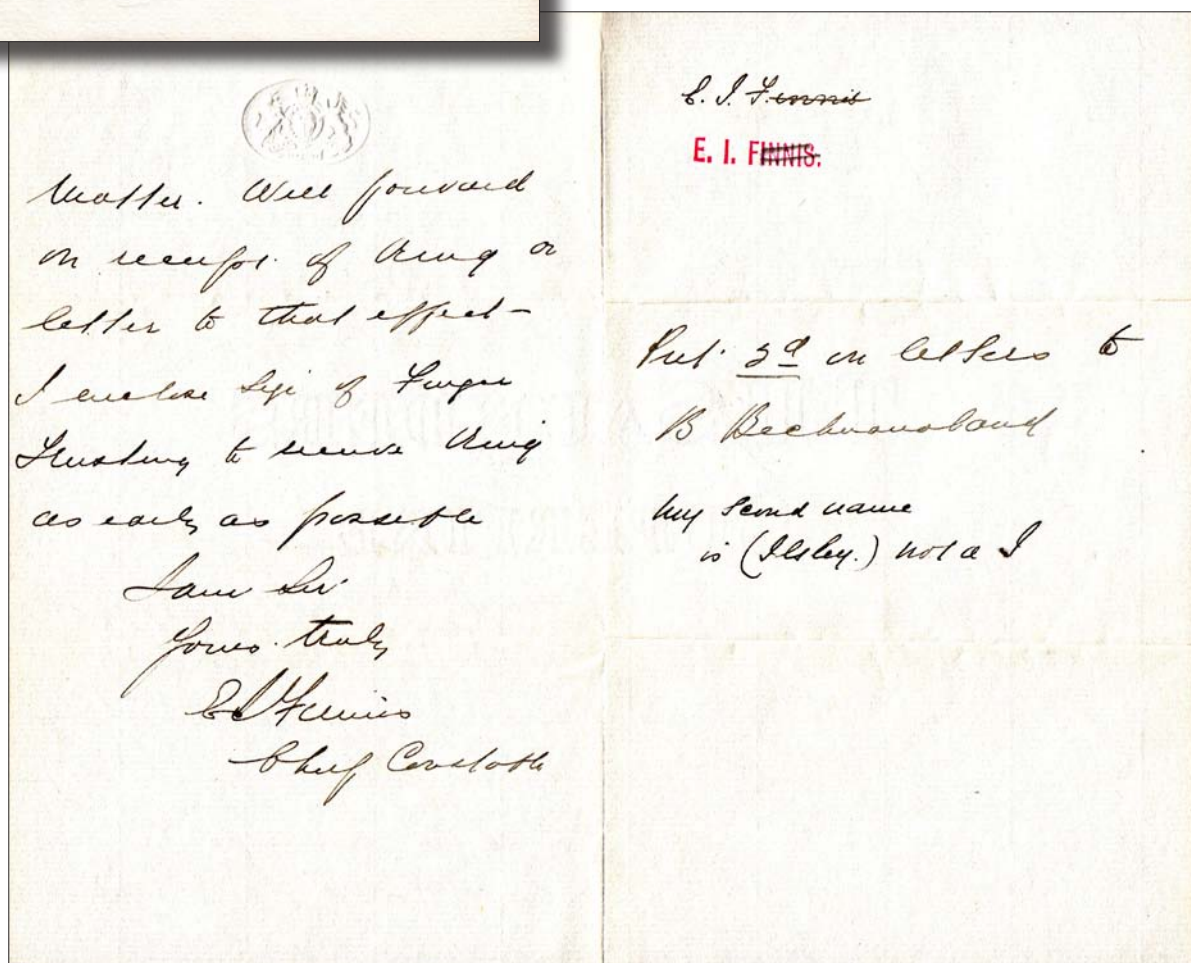 matter. Will forward
on receipt of Ring or
letter to that effect –
I enclose size of Finger
Trusting to receive Ring
as early as possible
I am Sir
Yours truly
E I Finnis
Chief Constable
E. I. Finnis
E. I. FINNIS.
Put 3d on letters to
B Bechuanaland
My second name
is (Ilsley.) not a J